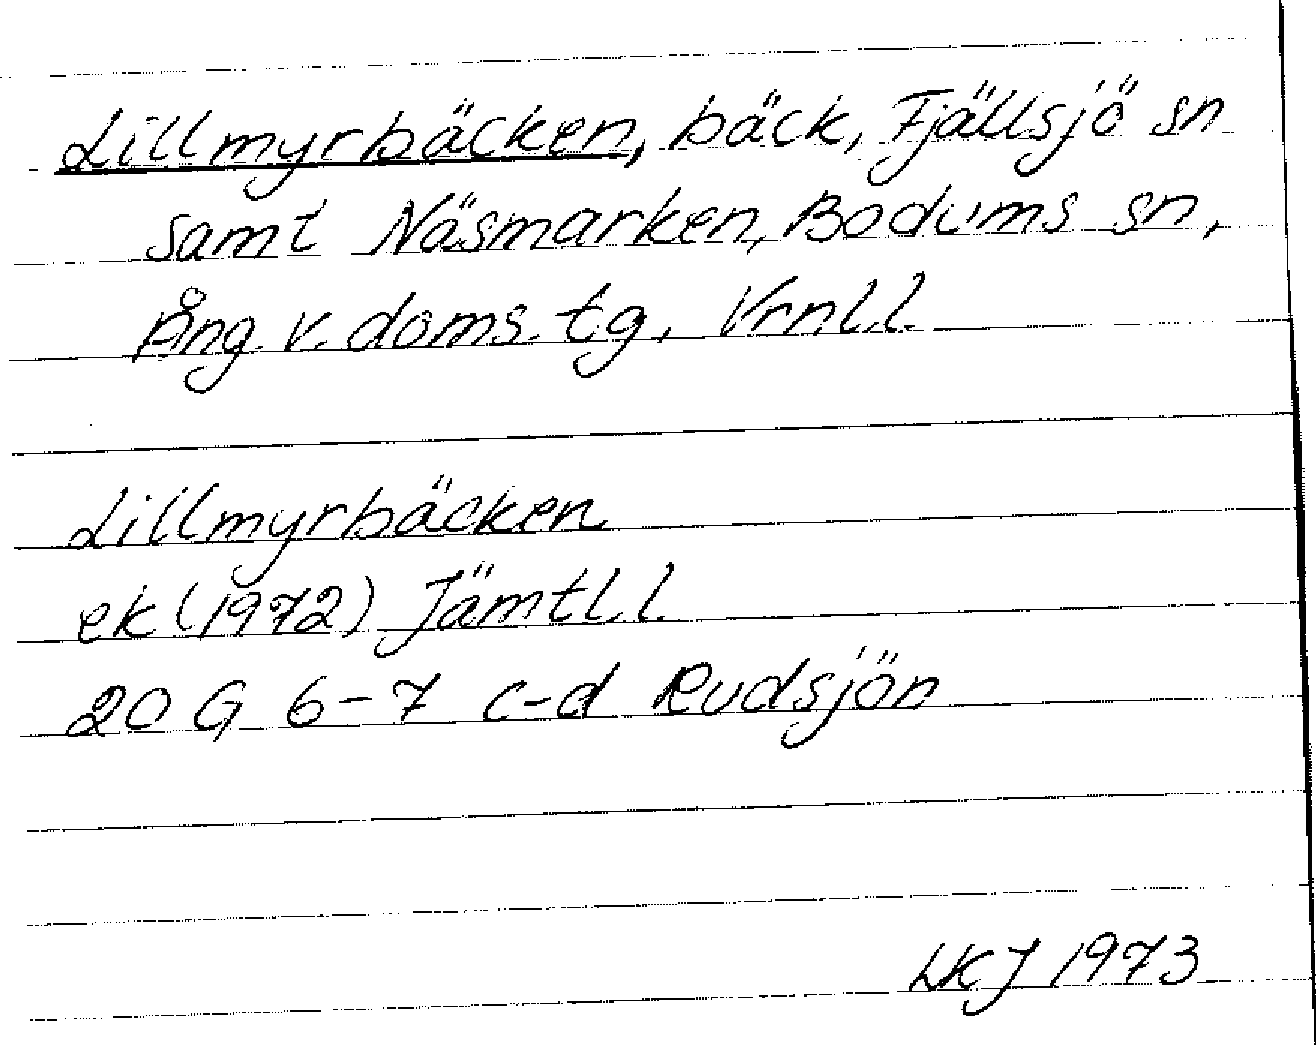 Lillmyrbäcken, bäck, Fjällsjö sn
samt Näsmarken, Bodums sn,
Ång. v. doms. tg, Vrnl.l.
Lillmyrbäcken
ek (1972) Jämtl.l.
20 G 6-7 c-d Rudsjön
LKJ 1973